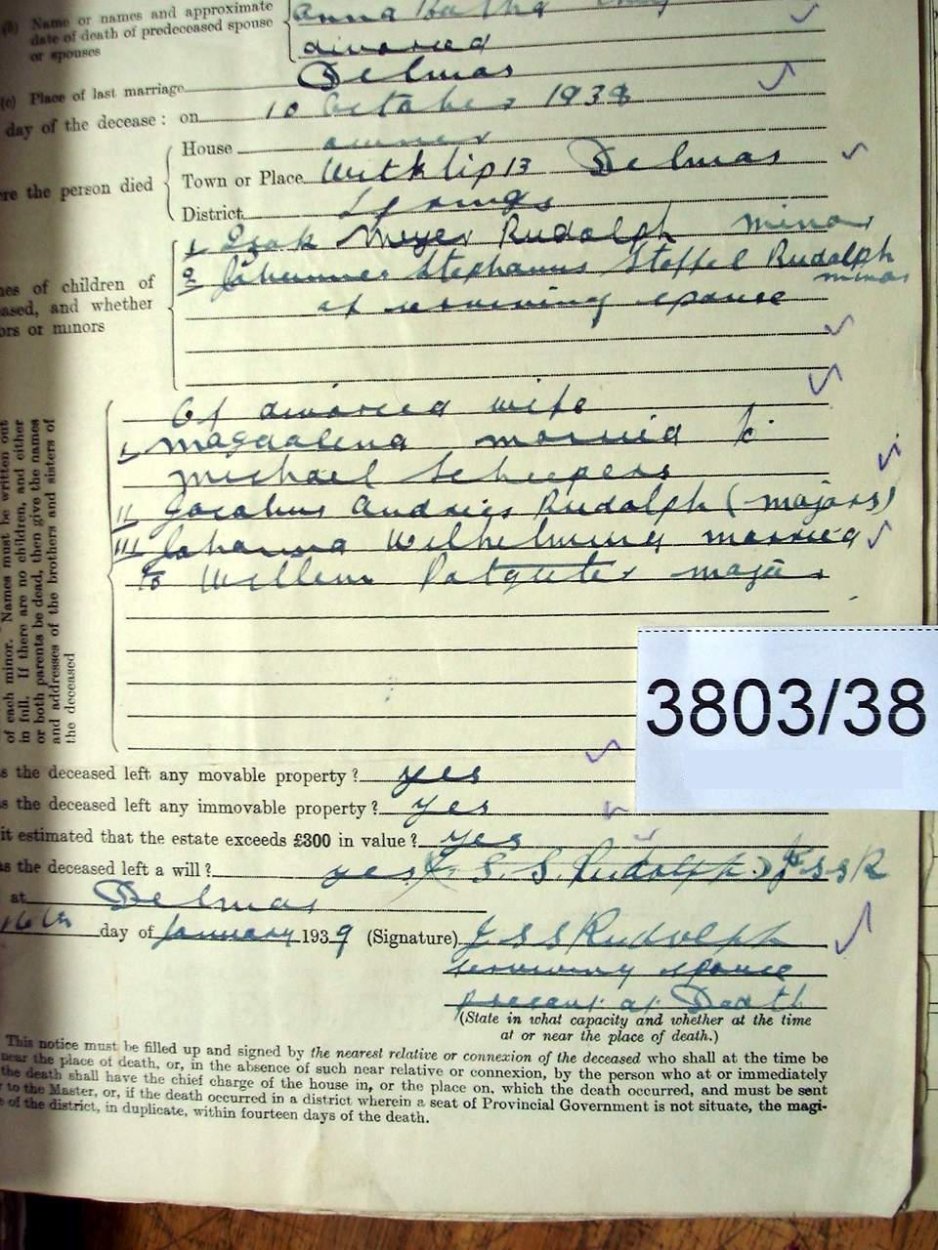 (b) Name or names and approximate Anna
date of death of predeceased spouse
or spouses divorced
(c) Place of last marriage Delmas
day of the decease : on 10 October 1938
House owner
re the person died Town or Place Witklip 13 Delmas
District Springs
1 Izak Meyer Rudolph minor
2 Johannes Stephanus Stoffel Rudolph
minor
es of children of of surviving spouse
ased, and whether
ors or minors
Of divorced wife
I Magdalena married to
Michael Scheepers
II Jacobus Andries Rudolph (majors)
III Johanna Wilhelmina married
to Willem Potgieter major
of each minor. Names must be written out
in full. If there are no children, and either
or both parents be dead, then give the names
and addresses of the brothers and sisters of
the deceased
3803/38
s the deceased left any movable property? yes
s the deceased left any immovable property? yes
it estimated that the estate exceeds £300 in value? yes
as the deceased left a will? yes J. S. S. Rudolph J S S R
at Delmas
16th day of January 1939 (Signature) J S S Rudolph
surviving spouse
present at Death
(State in what capacity and whether at the time
at or near the place of death.)
This notice must be filled up and signed by the nearest relative or connexion of the deceased who shall at the time be
near the place of death, or, in the absence of such near relative or connexion, by the person who at or immediately
the death shall have the chief charge of the house in, or the place on, which the death occurred, and must be sent
to the Master, or, if the death occurred in a district wherein a seat of Provincial Government is not situate, the magi-
of the district, in duplicate, within fourteen days of the death.